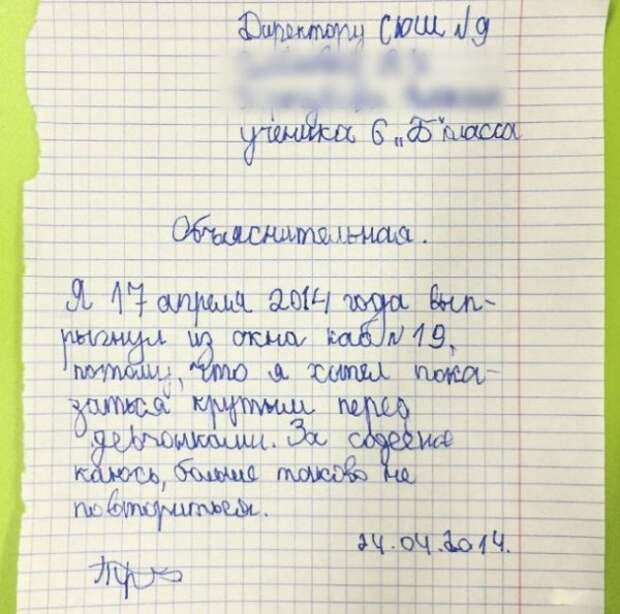 Директору СЮШ №9
ученика 6 „Б" класса
Объяснительная.
Я 17 апреля 2014 года вып-
рыгнул из окна каб №19,
потому, что я хотел пока-
заться крутым перед
девчонками. За содееное
каюсь, больше таково не
повториться.
24.04.2014.